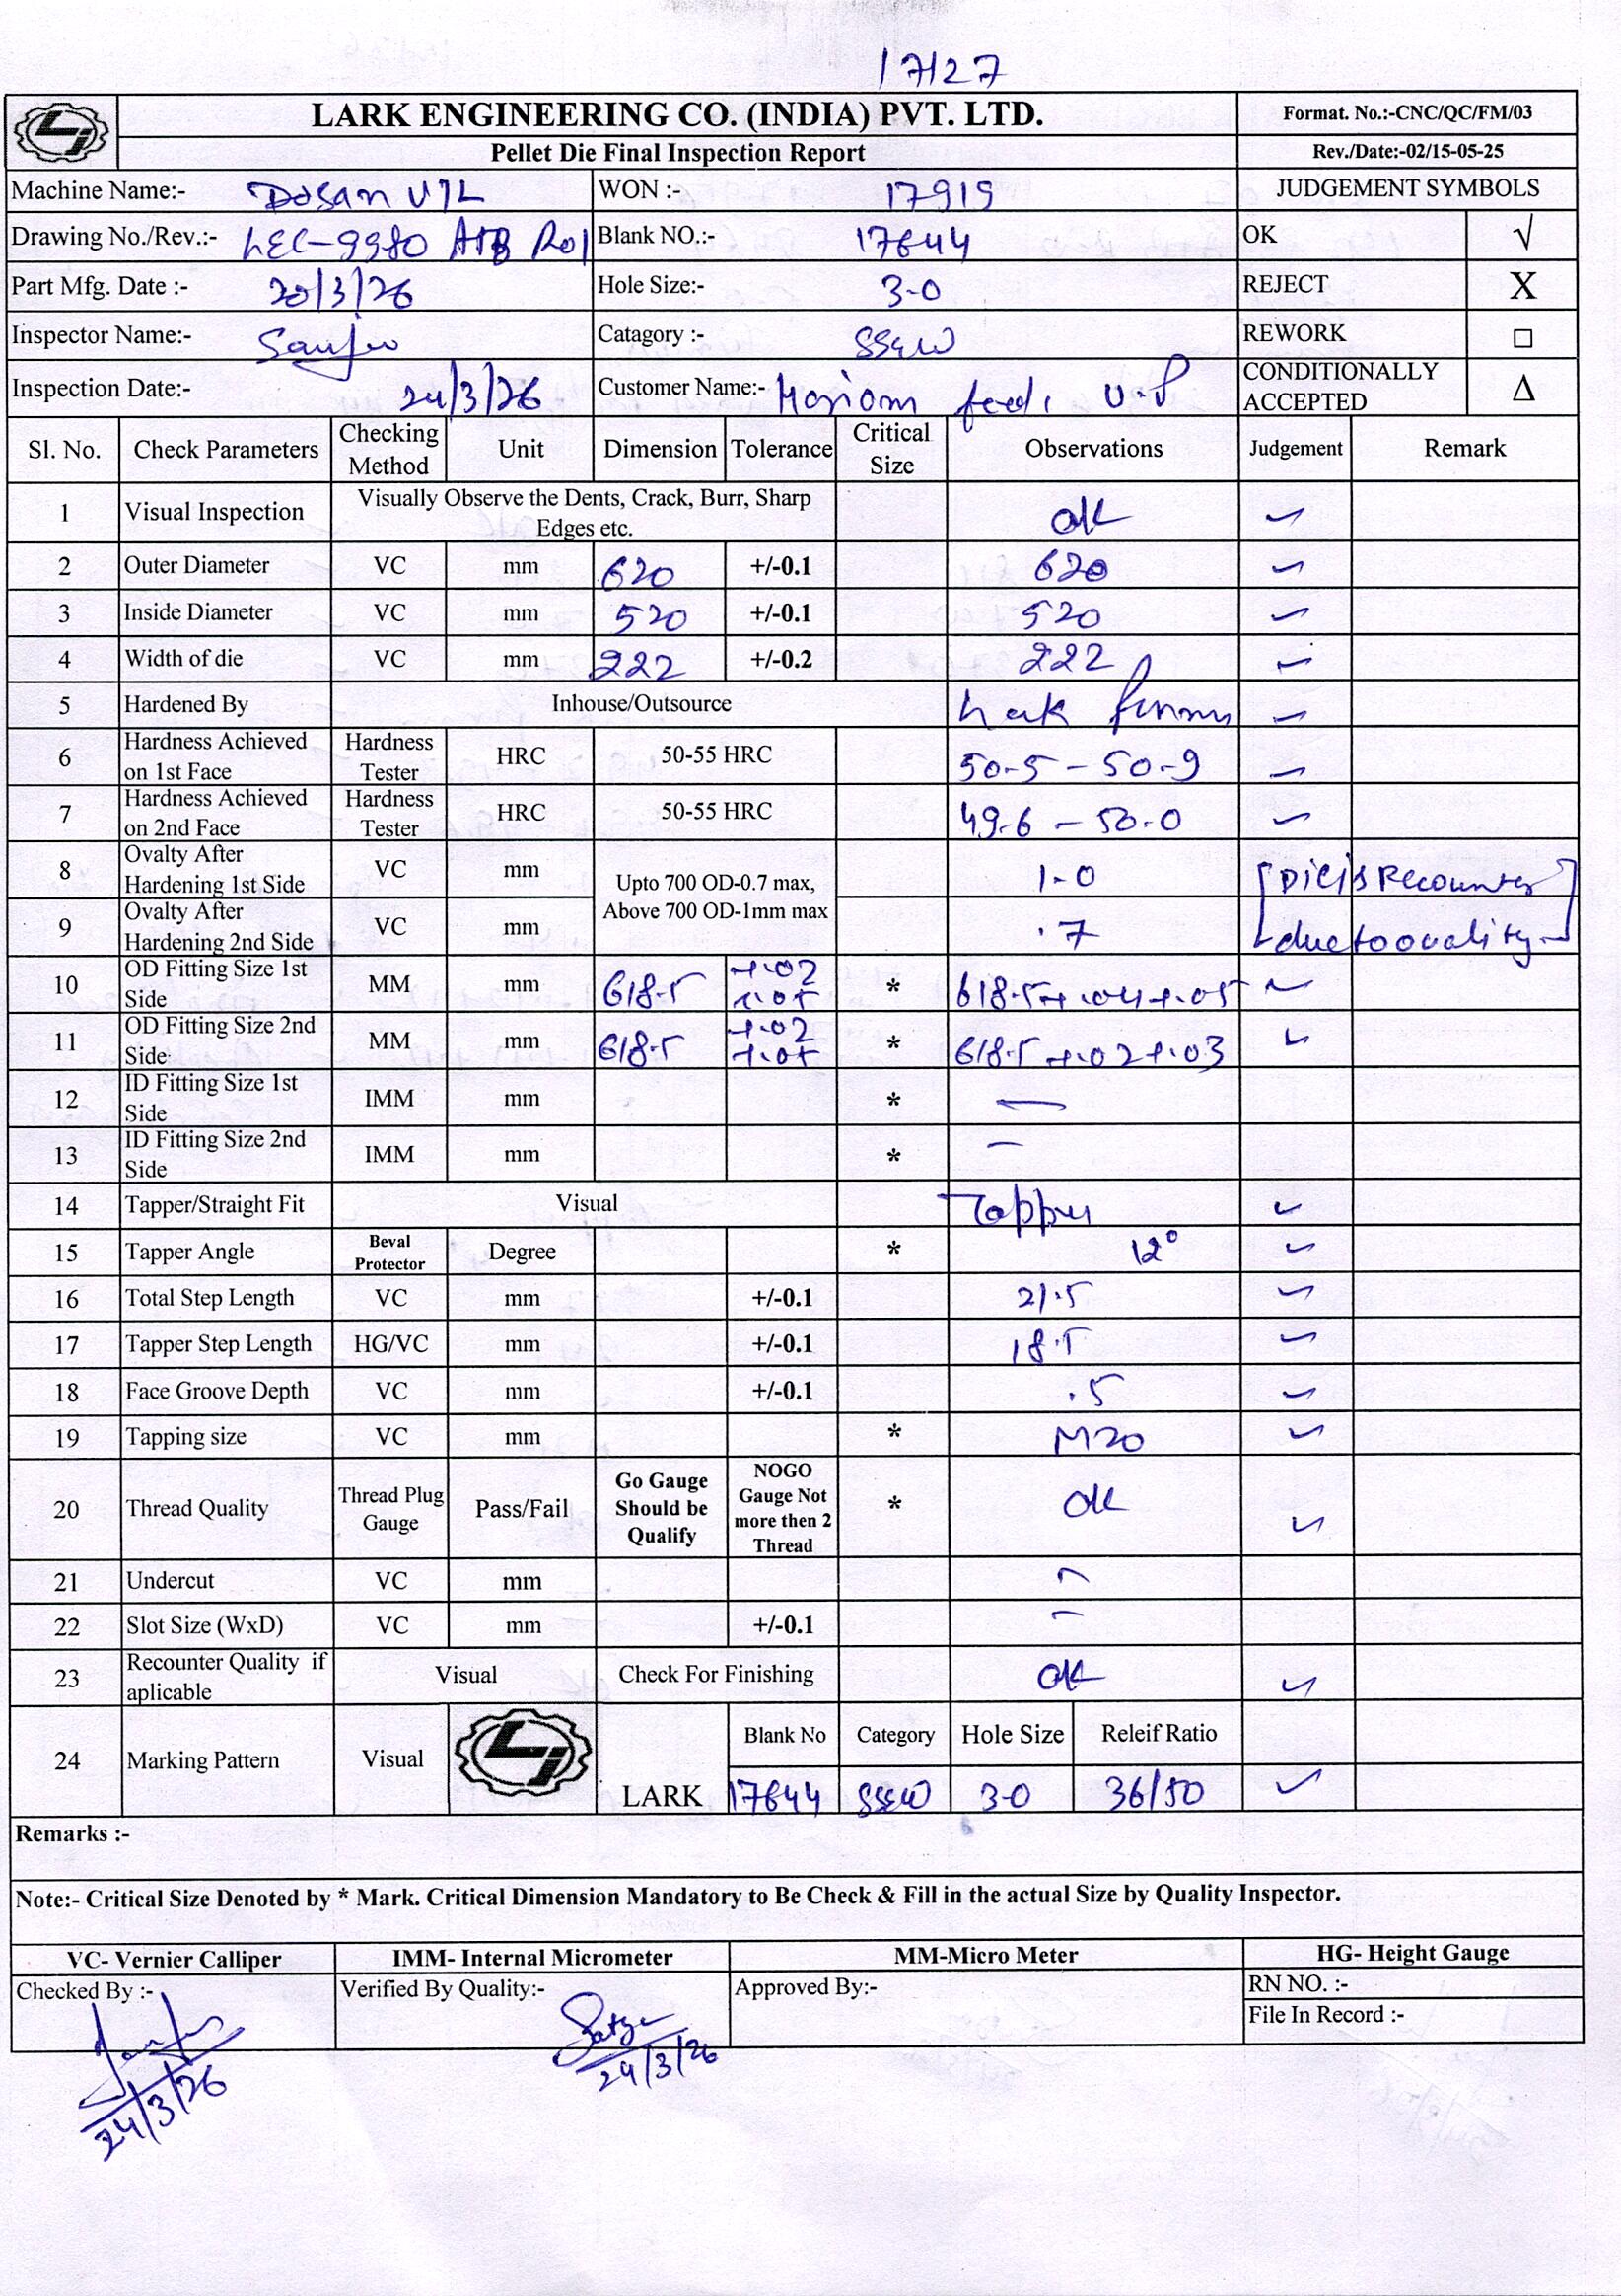 17127
LARK ENGINEERING CO. (INDIA) PVT. LTD. Format. No.:-CNC/QC/FM/03
Pellet Die Final Inspection Report Rev./Date:-02/15-05-25
Machine Name:- Dosan VTL WON :- 17919 JUDGEMENT SYMBOLS
Drawing No./Rev.:- LEC-9980 R01 Blank NO.:- 17644 OK √
Part Mfg. Date :- 20/3/26 Hole Size:- 3-0 REJECT X
Inspector Name:- Sanju Catagory :- REWORK □
Inspection Date:- 24/3/26 Customer Name:- Hariom feed, U.P CONDITIONALLY ACCEPTED Δ
Sl. No. Check Parameters Checking Method Unit Dimension Tolerance Critical Size Observations Judgement Remark
1 Visual Inspection Visually Observe the Dents, Crack, Burr, Sharp Edges etc. ok ✓
2 Outer Diameter VC mm 620 +/-0.1 620 ✓
3 Inside Diameter VC mm 520 +/-0.1 520 ✓
4 Width of die VC mm 222 +/-0.2 222 ✓
5 Hardened By Inhouse/Outsource Lark ✓
6 Hardness Achieved on 1st Face Hardness Tester HRC 50-55 HRC 50.5 - 50.9 ✓
7 Hardness Achieved on 2nd Face Hardness Tester HRC 50-55 HRC 49.6 - 50.0 ✓
8 Ovalty After Hardening 1st Side VC mm Upto 700 OD-0.7 max, Above 700 OD-1mm max 1-0 [Die is Recounter
9 Ovalty After Hardening 2nd Side VC mm .7 due to ovality]
10 OD Fitting Size 1st Side MM mm 618.5 +.02 +.05 * 618.5 +.04 +.05 ✓
11 OD Fitting Size 2nd Side MM mm 618.5 +.02 +.05 * 618.5 +.02 +.03 ✓
12 ID Fitting Size 1st Side IMM mm * —
13 ID Fitting Size 2nd Side IMM mm * —
14 Tapper/Straight Fit Visual Tapper ✓
15 Tapper Angle Beval Protector Degree * 12° ✓
16 Total Step Length VC mm +/-0.1 21.5 ✓
17 Tapper Step Length HG/VC mm +/-0.1 18.5 ✓
18 Face Groove Depth VC mm +/-0.1 .5 ✓
19 Tapping size VC mm * M20 ✓
20 Thread Quality Thread Plug Gauge Pass/Fail Go Gauge Should be Qualify NOGO Gauge Not more then 2 Thread * ok ✓
21 Undercut VC mm —
22 Slot Size (WxD) VC mm +/-0.1 —
23 Recounter Quality if aplicable Visual Check For Finishing ok ✓
24 Marking Pattern Visual LARK Blank No Category Hole Size Releif Ratio
17644 3-0 36/50 ✓
Remarks :-
Note:- Critical Size Denoted by * Mark. Critical Dimension Mandatory to Be Check & Fill in the actual Size by Quality Inspector.
VC- Vernier Calliper IMM- Internal Micrometer MM-Micro Meter HG- Height Gauge
Checked By :- Verified By Quality:- Approved By:- RN NO. :-
File In Record :-
24/3/26 24/3/26